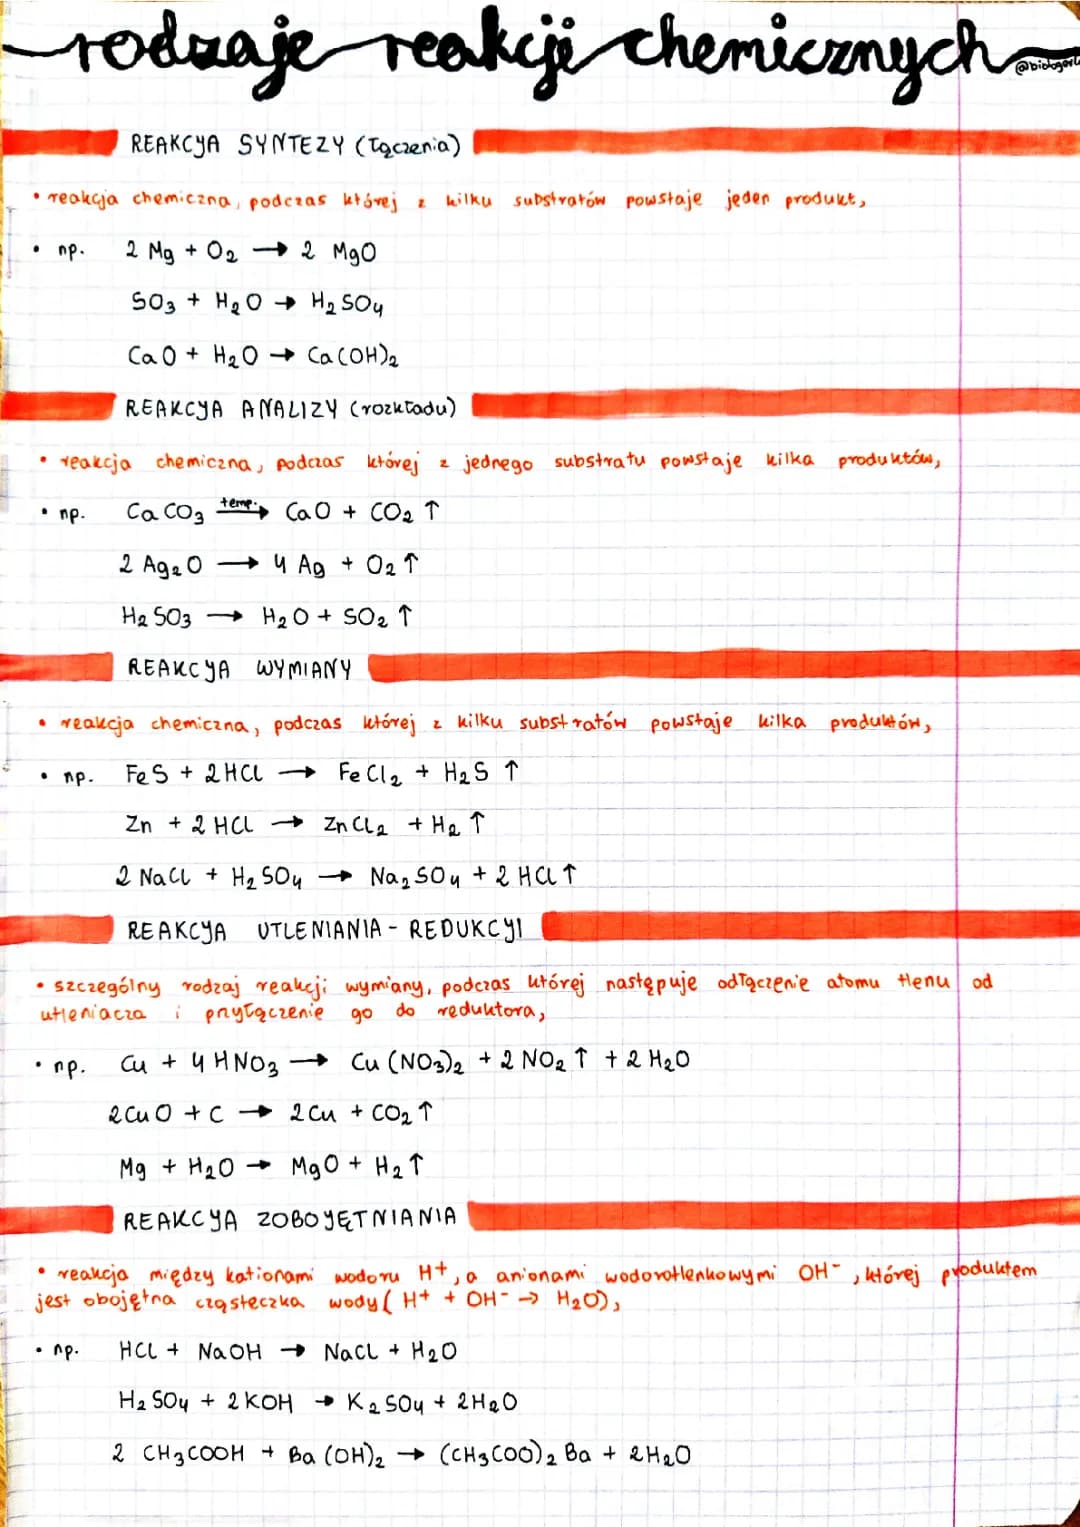 rodzaje reakcji chemicznych
REAKCJA SYNTEZY (łączenia)
• reakcja chemiczna, podczas której z kilku substratów powstaje jeden produkt,
• np. 2 Mg + O₂ → 2 MgO
SO₃ + H₂O → H₂SO₄
CaO + H₂O → Ca(OH)₂
REAKCJA ANALIZY (rozkładu)
• reakcja chemiczna, podczas której z jednego substratu powstaje kilka produktów,
• np. CaCO₃ temp.→ CaO + CO₂ ↑
2 Ag₂O → 4 Ag + O₂ ↑
H₂SO₃ → H₂O + SO₂ ↑
REAKCJA WYMIANY
• reakcja chemiczna, podczas której z kilku substratów powstaje kilka produktów,
• np. FeS + 2HCl → FeCl₂ + H₂S ↑
Zn + 2 HCl → ZnCl₂ + H₂ ↑
2 NaCl + H₂SO₄ → Na₂SO₄ + 2 HCl ↑
REAKCJA UTLENIANIA - REDUKCJI
• szczególny rodzaj reakcji wymiany, podczas której następuje odłączenie atomu tlenu od
utleniacza i przyłączenie go do reduktora,
• np. Cu + 4 HNO₃ → Cu(NO₃)₂ + 2 NO₂ ↑ + 2 H₂O
2CuO + C → 2Cu + CO₂ ↑
Mg + H₂O → MgO + H₂ ↑
REAKCJA ZOBOJĘTNIANIA
• reakcja między kationami wodoru H⁺, a anionami wodorotlenkowymi OH⁻, której produktem
jest obojętna cząsteczka wody (H⁺ + OH⁻ → H₂O),
• np. HCl + NaOH → NaCl + H₂O
H₂SO₄ + 2 KOH → K₂SO₄ + 2H₂O
2 CH₃COOH + Ba(OH)₂ → (CH₃COO)₂Ba + 2H₂O